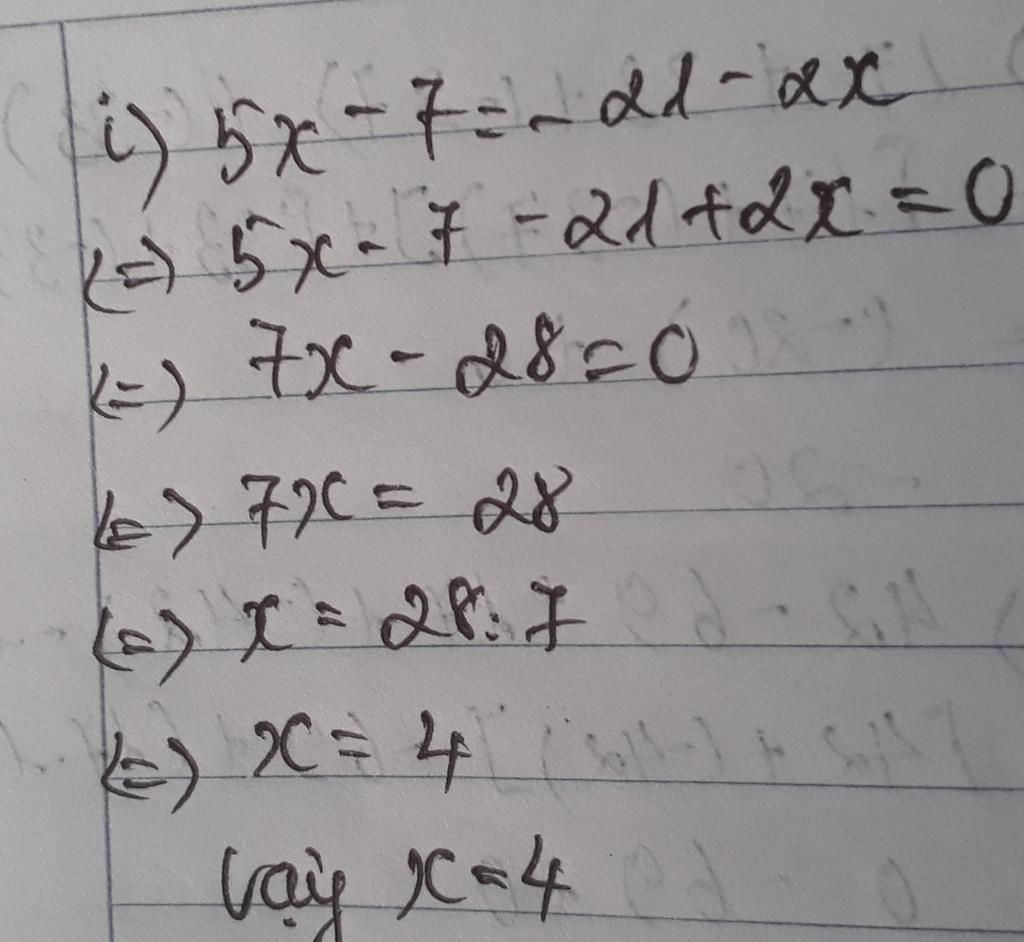 i) 5x - 7 = - 21 - 2x
<=> 5x - 7 - 21 + 2x = 0
<=> 7x - 28 = 0
<=> 7x = 28
<=> x = 28 : 7
<=> x = 4
Vậy x = 4